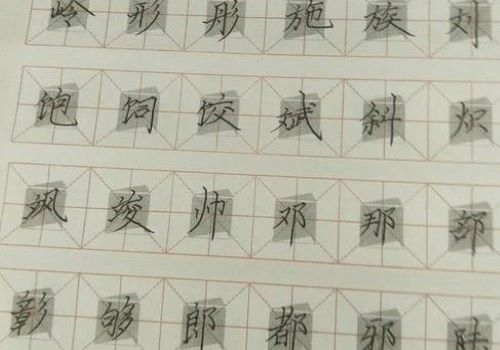 岭形彤施族刘
饱饲饺斌斜炽
飒竣帅邓那部
彰够郎都邪陆